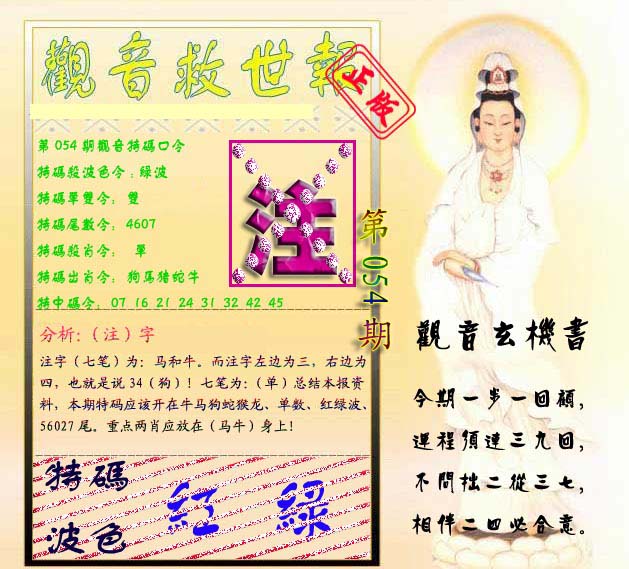 觀音救世報
正版
第054期觀音特碼口令
特碼殺波色令:綠波
特碼單雙令: 雙
特碼尾數令: 4607
特碼殺肖令: 單
特碼出肖令: 狗馬猪蛇牛
特中碼令: 07 16 21 24 31 32 42 45
注
第054期
分析:(注)字
注字(七笔)为:马和牛。而注字左边为三,右边为
四,也就是说34(狗)!七笔为:(单)总结本报资
料,本期特码应该开在牛马狗蛇猴龙、单数、红绿波、
56027尾。重点两肖应放在(马牛)身上!
特碼
波色
紅 綠
觀音玄機書
今期一步一回顧,
運程須達三九回,
不問拙二從三七,
相伴二四必合意。